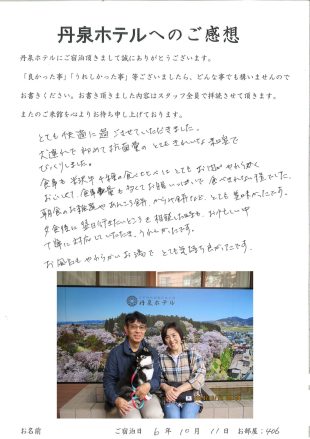 丹泉ホテルへのご感想
丹泉ホテルにご宿泊頂きまして誠にありがとうございます。
「良かった事」「うれしかった事」等ございましたら、どんな事でも構いませんので
お書きください。お書き頂きました内容はスタッフ全員で拝読させて頂きます。
またのご来館を心よりお待ち申し上げております。
とても快適に過ごさせていただきました。
犬連れで初めてお部屋の とてもきれいな和室で
びっくりしました。
食事も 米沢牛
とても お肉がやわらかく
おいしく、食事 も多くてお腹いっぱいで 食べきれない程でした。
朝食のお雑煮やあんころ餅、からみ餅など、とても美味かったです。
夕食後に 翌日行きたいところを相談した時も、お忙しい中
丁寧に対応していただき、うれしかったです。
お風呂もやわらかいお湯で とても気持ち良かったです。
丹泉ホテル
お名前
ご宿泊日 6年 10月 11日 お部屋：406